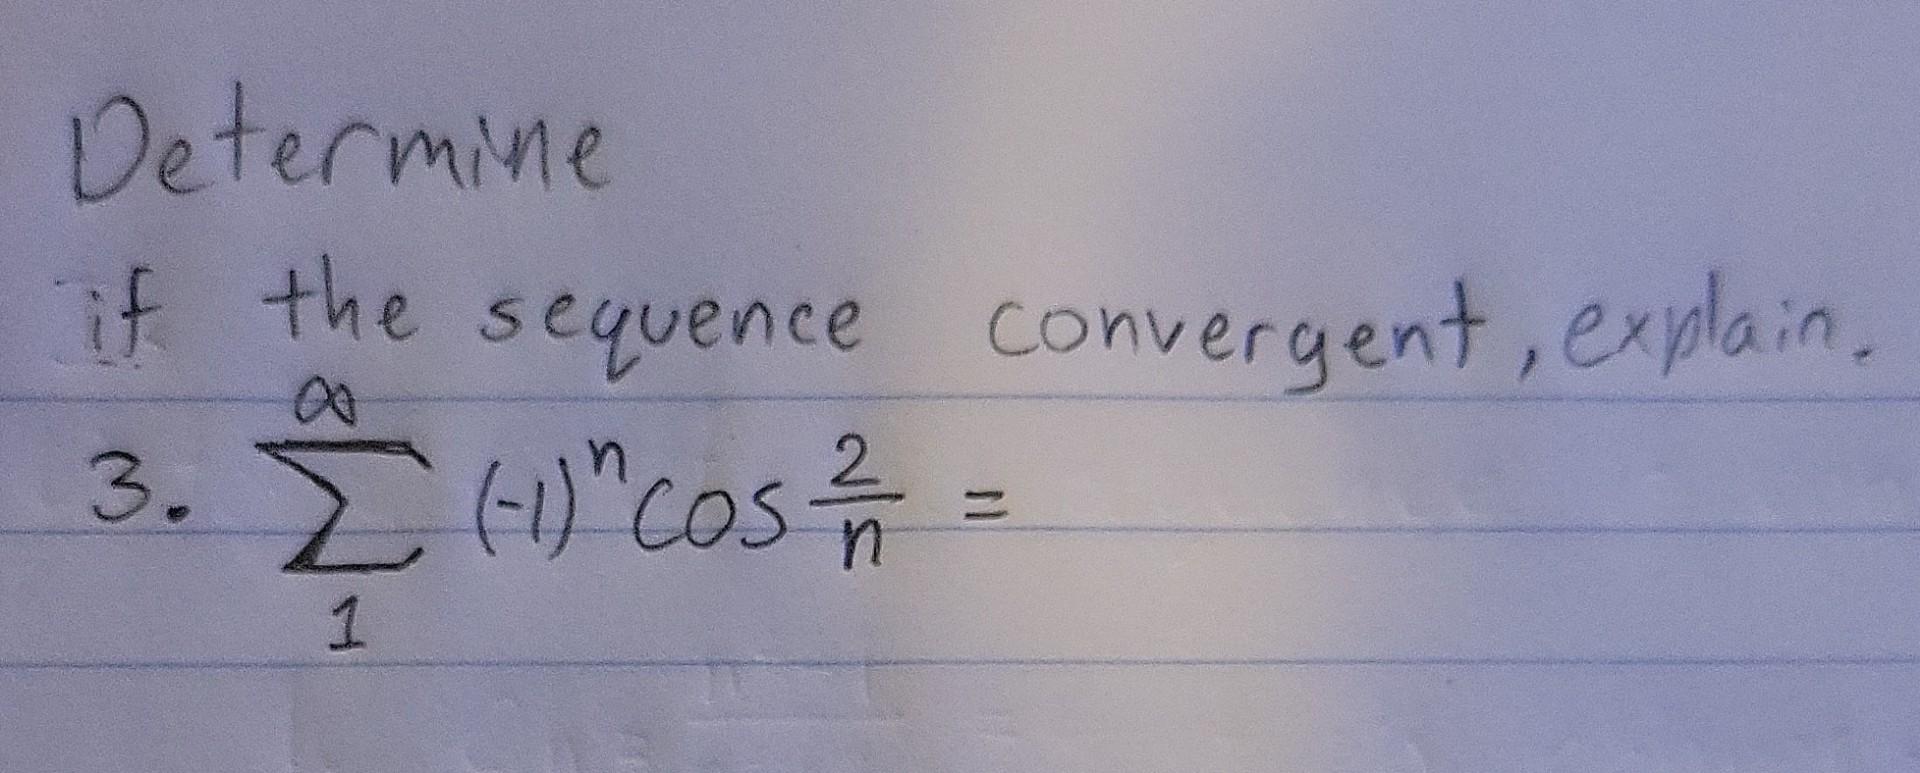 Determine
if the sequence convergent, explain.
3. $\sum_{1}^{\infty} (-1)^n \cos \frac{2}{n} =$